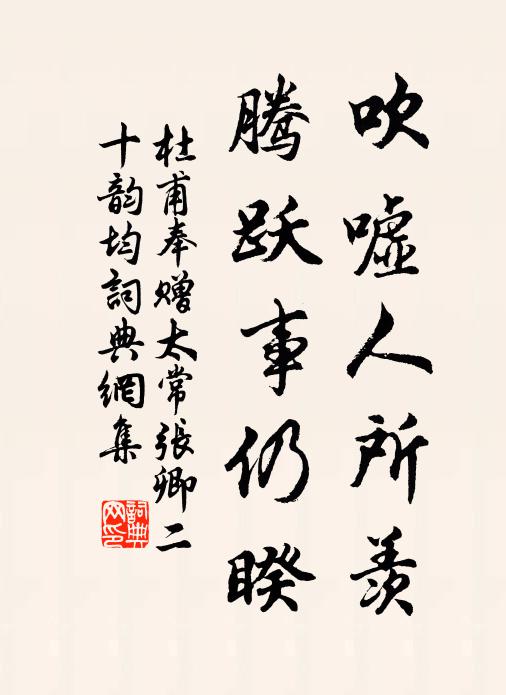 吹嘘人所羡
腾跃事仍睽
杜甫奉赠太常张卿二
十韵均词典网集
词典
网印